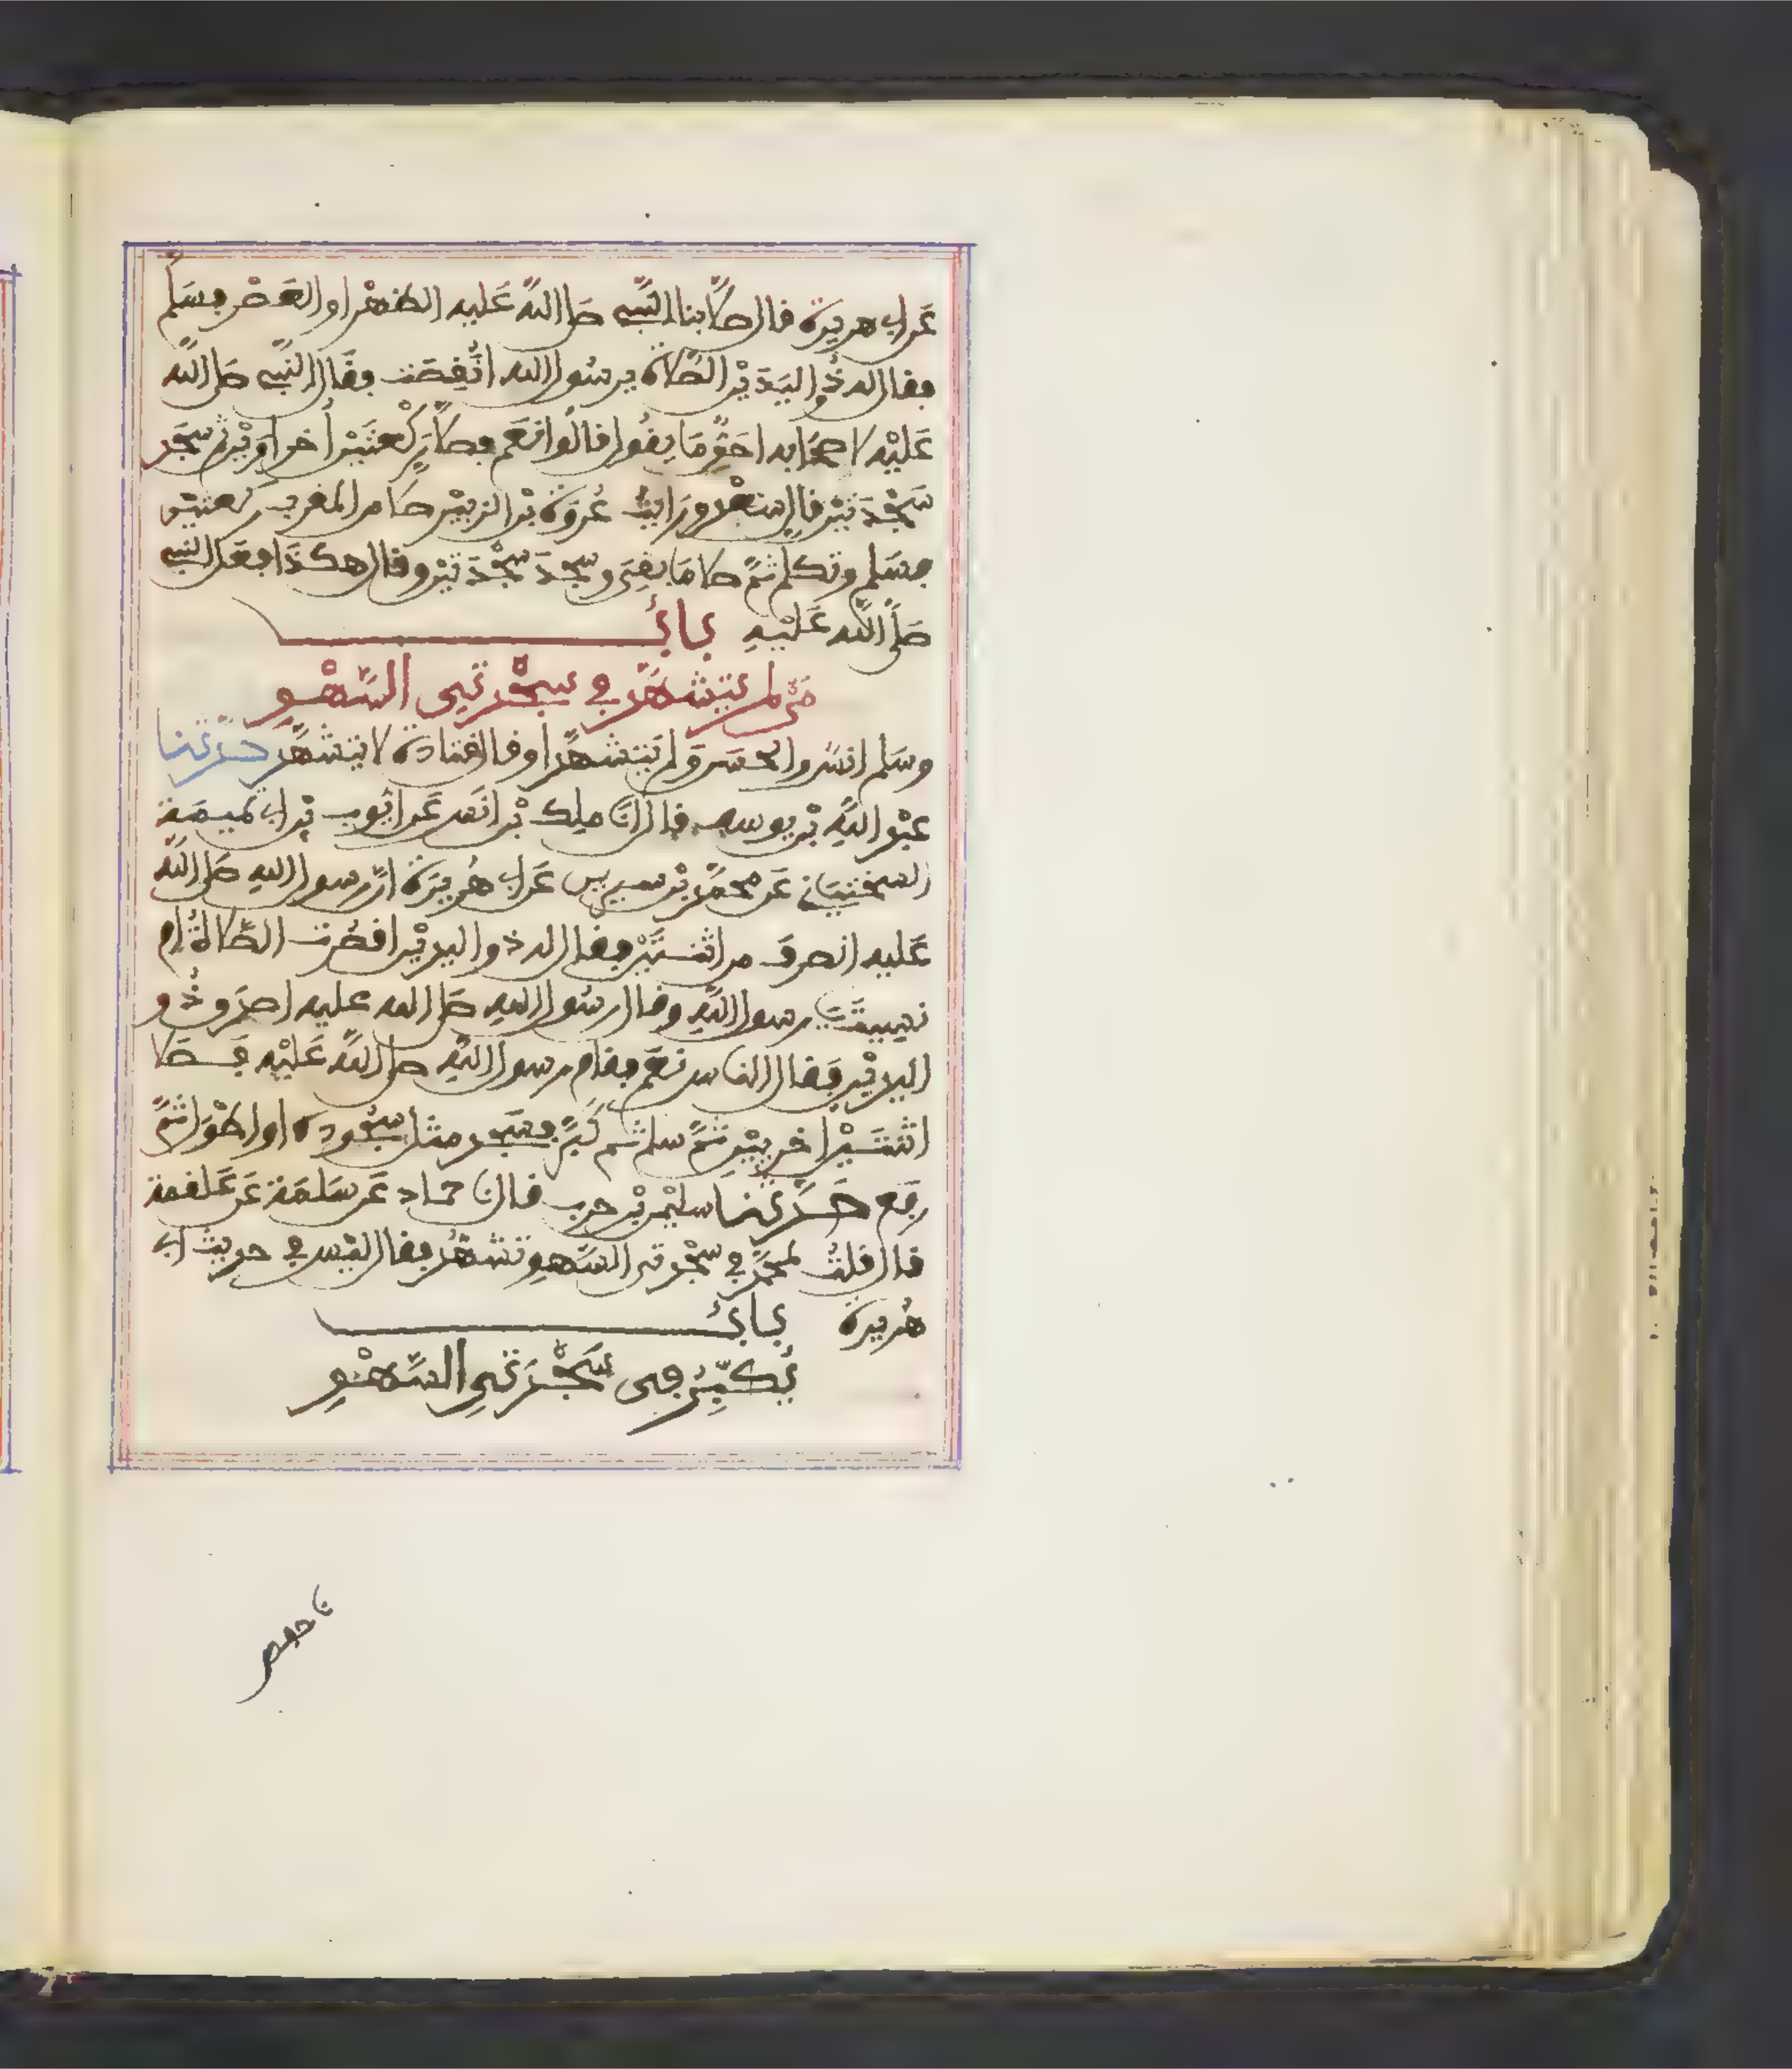 عَن ابي هريرة قال صلَّى بنا النَّبِي صلى اللهُ عَليه الظهْر او العَصْر فسَلَّم
فقال له ذُو اليَدَيْن الصَّلاة يرسُول الله انَقَصَت فقَال النَّبي صَلى اللهُ
عَلَيْه لاصحَابه احَقٌّ مَا يقُول قالُوا نعَم فصلَّى رَكْعتَيْن أخراوَيْن ثم سَجَد
سَجْدَتَيْن قال سعْد ورَايتُ عُروَة بْن الزبَيْر صلى من المغرب ركعتين
فسَلم وتكلم ثمَّ صلى مَا بقِيَ وسجَدَ سَجْدَتَيْن وقال هكذَا فعَل النبي
صَلَّى الله عَلَيْهِ بَابُ
مَن لم يتشهَّد في سجْدتي السَّهْوِ
وسَلم انسُ والحسَن وَلم يَتشهَّدا وقال قتادة لا يتشهَّد حدَّثنا
عبْد اللهِ بْن يوسف قال انَا ملك بْن انَس عَن ايُّوب بْن ابي تميمَة
السختيَاني عَن محمَّد بْن سيرين عَن ابي هُريرَة انَّ رسول اللهِ صَلى اللهُ
عَليه انصرفَ من اثنتَيْن فقال له ذو اليديْن اقصُرت الصَّلاةُ ام
نسِيتَ رسول اللهِ وقال رسُول اللهِ صَلى الله عليه اصدَق ذُو
اليديْن فقال الناس نعَم فقام رسول اللهِ صلى اللهُ عَلَيْه فَصَلى
اثنتَيْن اخريَيْن ثمَّ سلم ثم كَبَّر فسَجد مثل سجُوده او اطْوَل ثمَّ
رفَع حَدَّثنَا سليْمن بْن حرب قال نا حماد عَن سَلمَة عَن عَلقمة
قال قلتُ لمحمَّد في سجْدتي السَّهوِ تشهُّد فقال ليْس في حديث ابي
هُريرة بَابُ
يُكبِّرُ في سَجْدَتَيِ السَّهْوِ
نا حفص